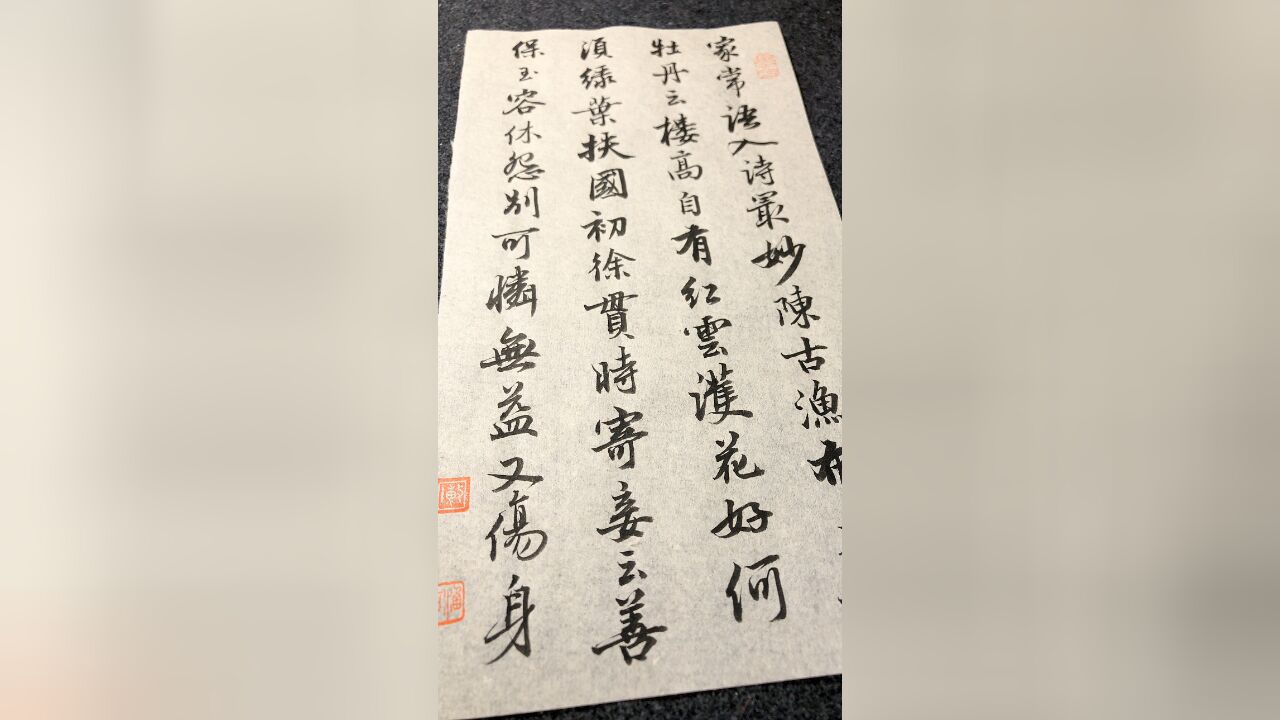 家常语入诗最妙陳古漁
牡丹云楼高自有红雲護花好何
須绿葉扶國初徐貫時寄妾云善
保玉容休怨别可憐無益又傷身